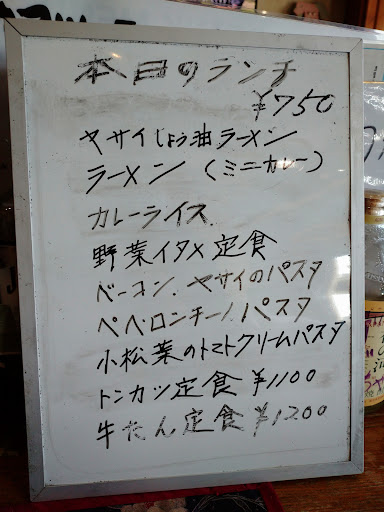 本日のランチ
¥750
ヤサイじょう油ラーメン
ラーメン(ミニカレー)
カレーライス
野菜イタメ定食
ベーコン.ヤサイのパスタ
ペペロンチーノパスタ
小松菜のトマトクリームパスタ
トンカツ定食¥1100
牛たん定食¥1200